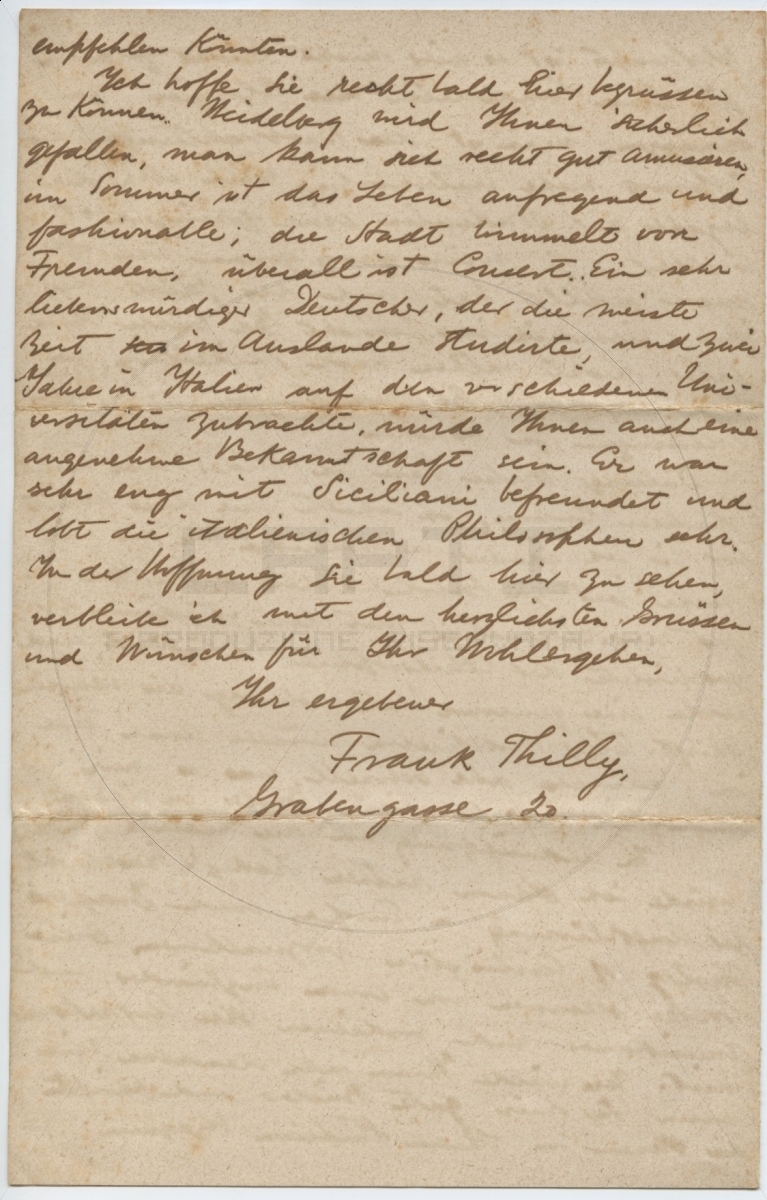 empfehlen könnten.
Ich hoffe Sie recht bald hier begrüssen
zu können. Heidelberg wird Ihnen sicherlich
gefallen, man kann sich recht gut amusiren,
im Sommer ist das Leben aufregend und
fashionable; die Stadt wimmelt von
Fremden, überall ist Consert. Ein sehr
liebenswürdiger Deutscher, der die meiste
Zeit im Auslande studirte, und zwei
Jahre in Italien auf den verschiedenen Uni-
versitäten zubrachte, würde Ihnen auch eine
angenehme Bekanntschaft sein. Er war
sehr eng mit Siciliani befreundet und
lobt die italienischen Philosophen sehr.
In der Hoffnung Sie bald hier zu sehen,
verbleibe ich mit den herzlichsten Grüssen
und Wünschen für Ihr Wohlergehen,
Ihr ergebener
Frank Thilly,
Grabengasse 20.